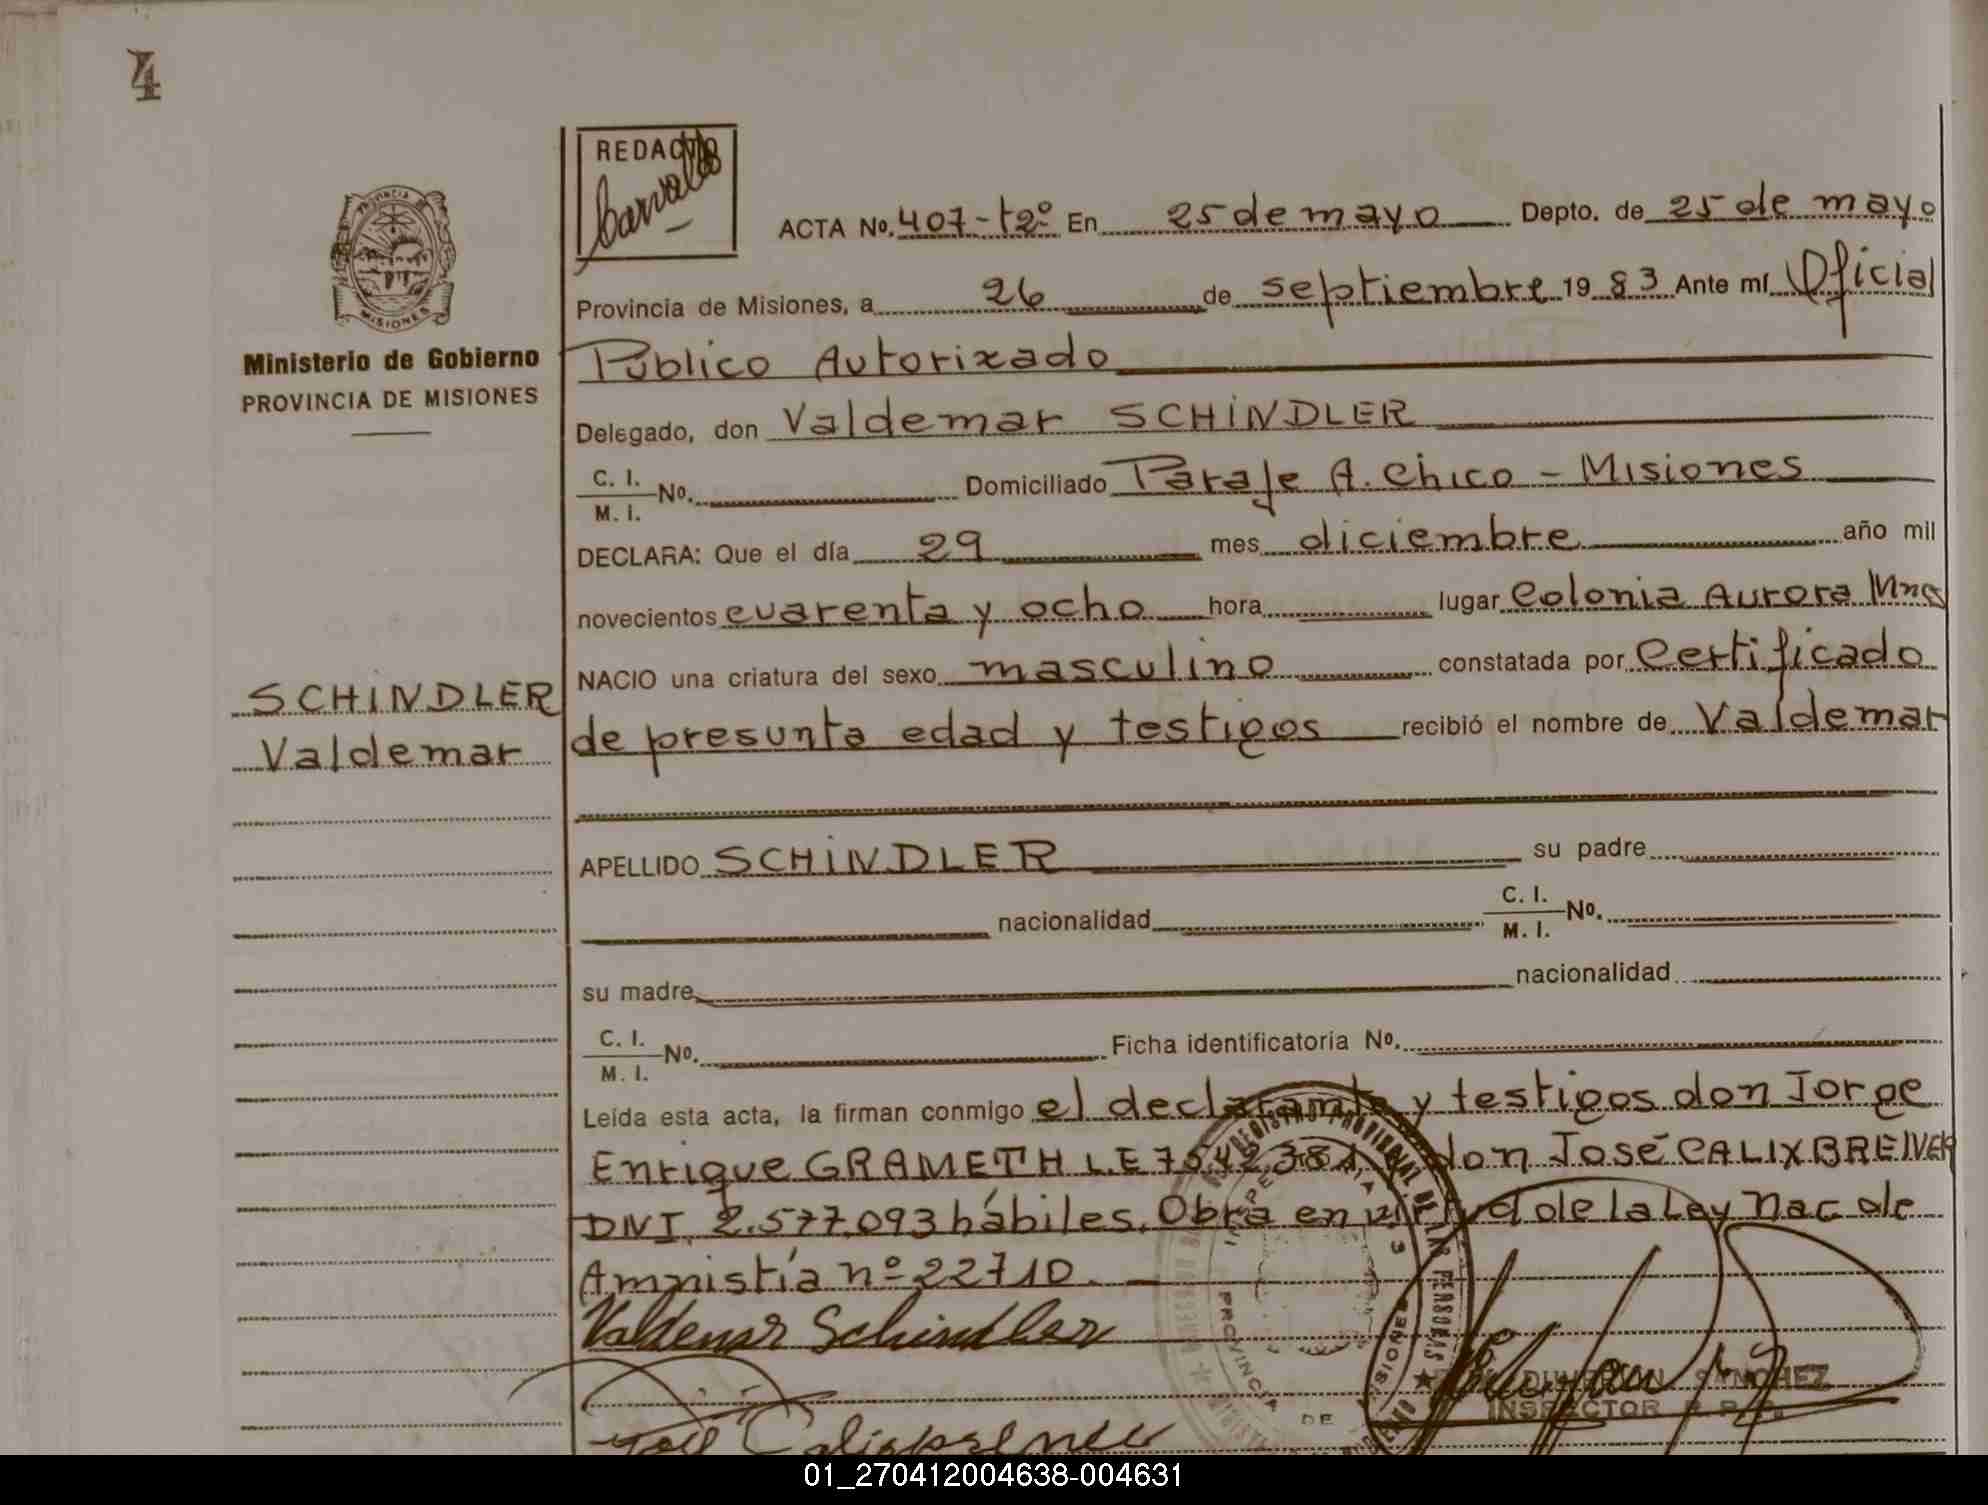 4
REDACTO
Carvallo
ACTA No. 407-t2º En 25 de mayo Depto. de 25 de mayo
Provincia de Misiones, a 26 de septiembre 1983 Ante mí Oficial
Público Autorizado
Delegado, don Valdemar SCHINDLER
C. I.
M. I. No. Domiciliado Paraje A. Chico - Misiones
DECLARA: Que el día 29 mes diciembre año mil
novecientos cuarenta y ocho hora lugar Colonia Aurora Mnes
NACIO una criatura del sexo masculino constatada por Certificado
de presunta edad y testigos recibió el nombre de Valdemar
APELLIDO SCHINDLER su padre
nacionalidad C. I.
M. I. No.
su madre nacionalidad
C. I.
M. I. No. Ficha identificatoria No.
Leída esta acta, la firman conmigo el declarante y testigos don Jorge
Enrique GRAMETH L.E 7542381, y don José CALIXBREIVER
DNI. 2.577.093 hábiles. Obra en virtud de la Ley Nac de
Amnistía nº 22710.
Valdemar Schindler
PROVINCIA DE MISIONES
Ministerio de Gobierno
PROVINCIA DE MISIONES
SCHINDLER
Valdemar
REGISTRO PROVINCIAL DE LAS PERSONAS
PROVINCIA DE MISIONES
SANCHEZ
INSPECTOR R.P.P.
01_270412004638-004631